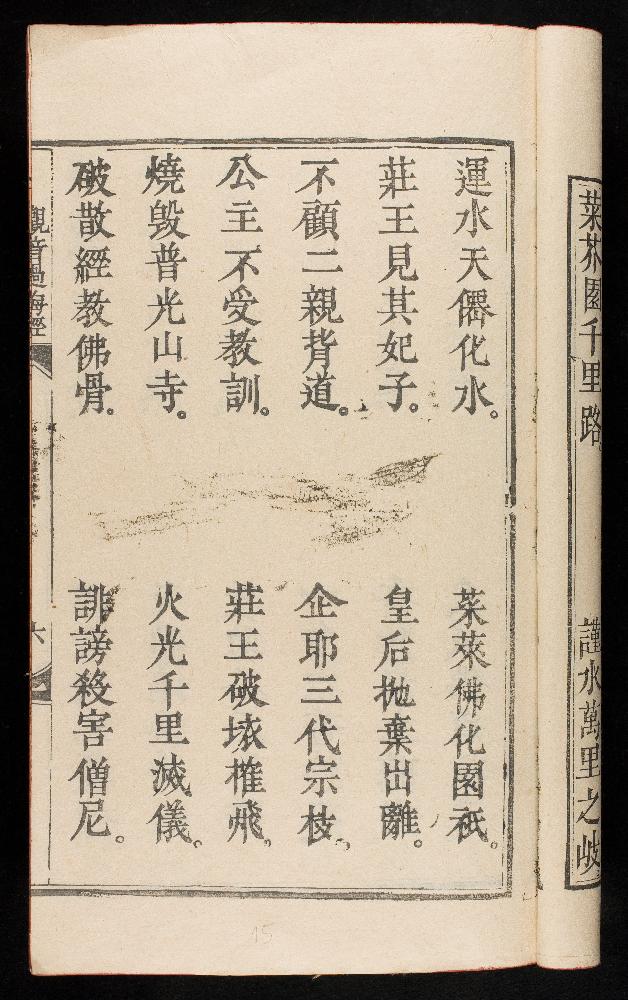 菜芥園千里路 謹水萬里之岐
運水天僊化水。 茱萊佛化園衹。
莊王見其妃子。 皇后抛棄出離。
不顧二親背道。 企耶三代宗枝。
公主不受教訓。 莊王破垓摧飛。
燒毁普光山寺。 火光千里滅儀。
破散經教佛骨。 誹謗殺害僧尼。
觀音過海經 六
15